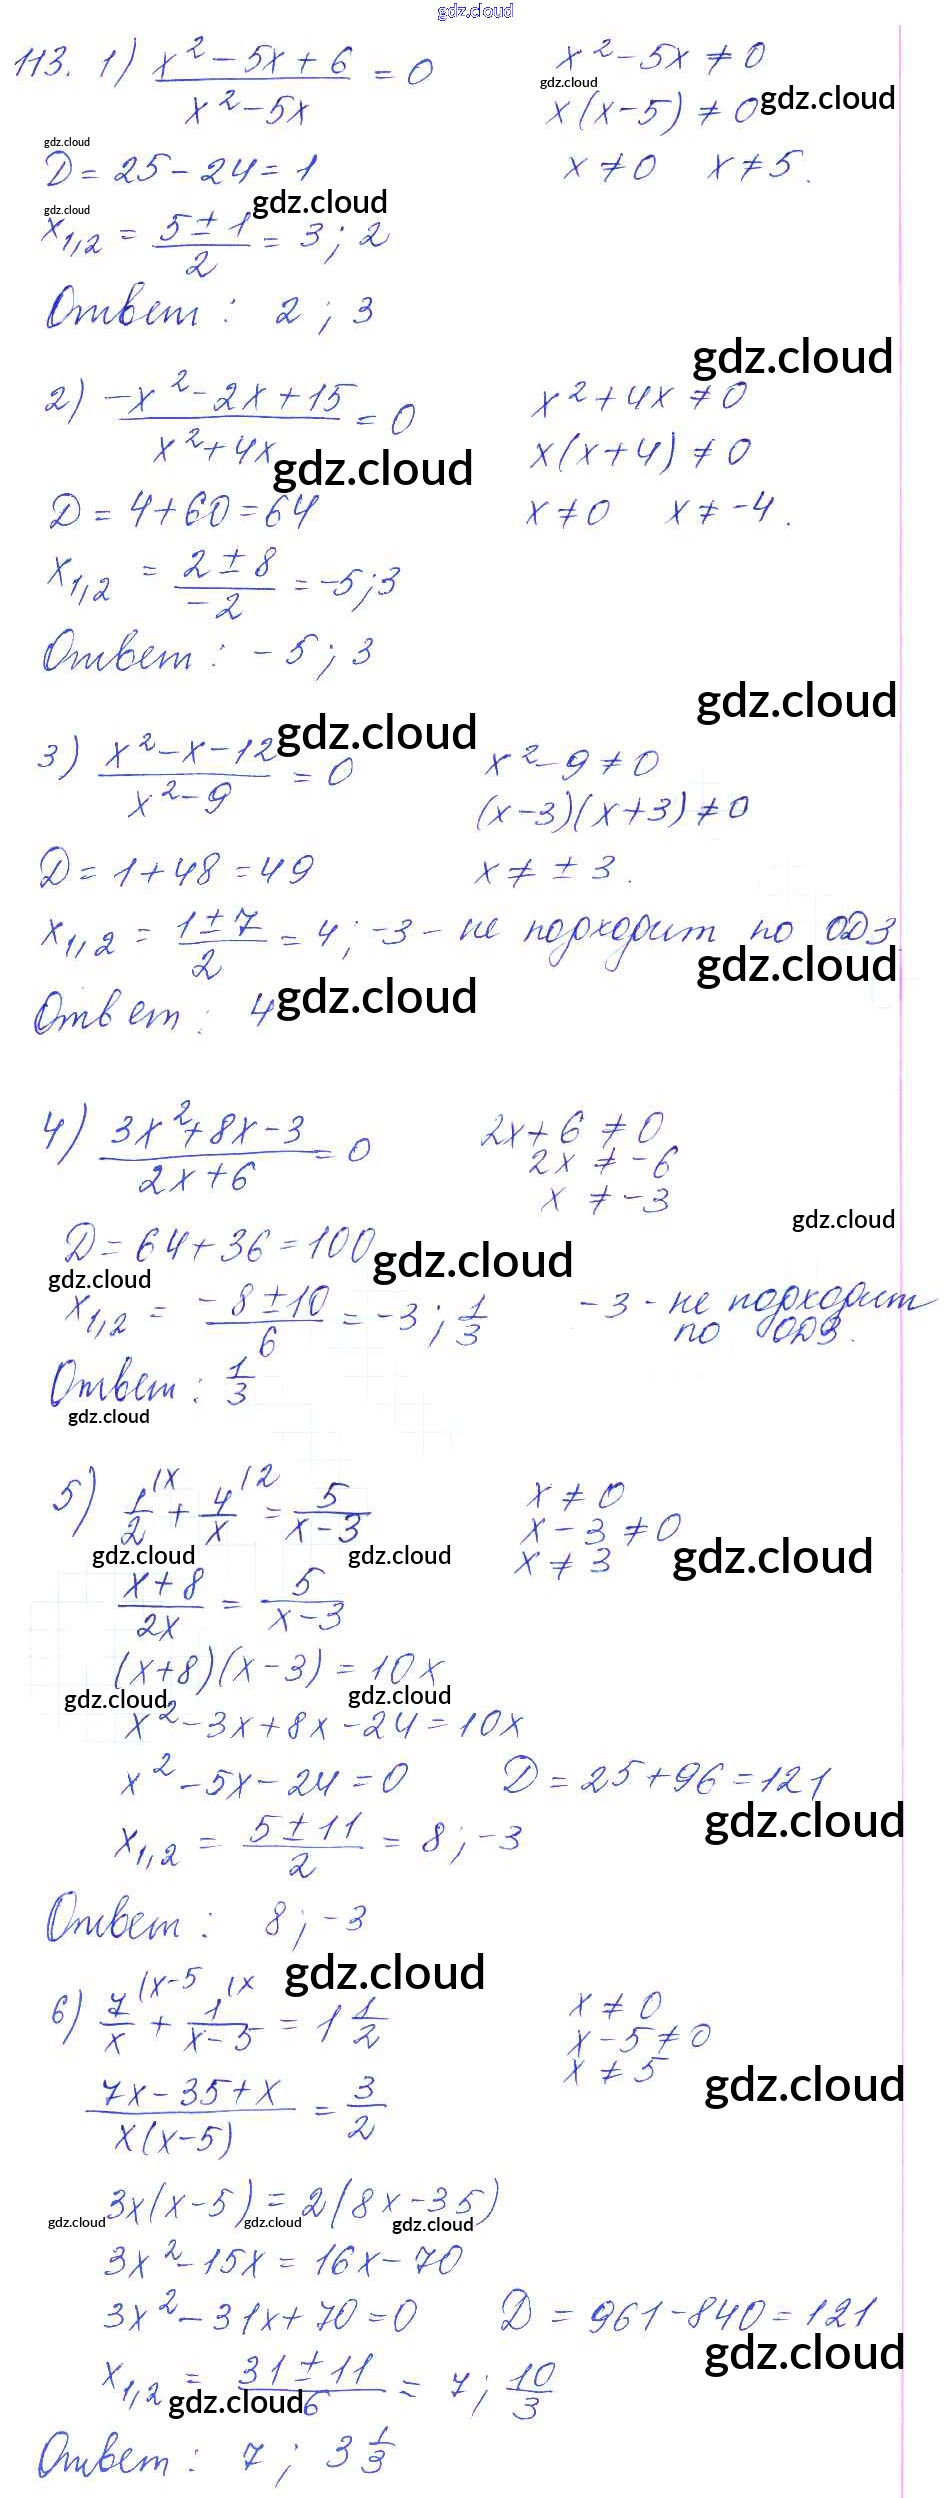 gdz.cloud
113. 1) (x² − 5x + 6)/(x² − 5x) = 0     x² − 5x ≠ 0
gdz.cloud
x(x − 5) ≠ 0 gdz.cloud
gdz.cloud
D = 25 − 24 = 1     x ≠ 0  x ≠ 5.
gdz.cloud
gdz.cloud
x₁,₂ = (5 ± 1)/2 = 3; 2
Ответ: 2; 3
gdz.cloud
2) (−x² − 2x + 15)/(x² + 4x) = 0     x² + 4x ≠ 0
gdz.cloud     x(x + 4) ≠ 0
D = 4 + 60 = 64     x ≠ 0  x ≠ −4.
x₁,₂ = (2 ± 8)/(−2) = −5; 3
Ответ: −5; 3
gdz.cloud
gdz.cloud
3) (x² − x − 12)/(x² − 9) = 0     x² − 9 ≠ 0
(x − 3)(x + 3) ≠ 0
D = 1 + 48 = 49     x ≠ ± 3.
x₁,₂ = (1 ± 7)/2 = 4; −3 − не подходит по ОДЗ
gdz.cloud
Ответ: 4 gdz.cloud
4) (3x² + 8x − 3)/(2x + 6) = 0     2x + 6 ≠ 0
2x ≠ −6
x ≠ −3
gdz.cloud
D = 64 + 36 = 100 gdz.cloud
gdz.cloud
x₁,₂ = (−8 ± 10)/6 = −3; 1/3     −3 - не подходит
по ОДЗ.
Ответ: 1/3
gdz.cloud
5) 1/2 (x + 4/x (2 = 5/(x − 3)     x ≠ 0
x − 3 ≠ 0
x ≠ 3 gdz.cloud
gdz.cloud gdz.cloud
(x + 8)/2x = 5/(x − 3)
(x + 8)(x − 3) = 10x
gdz.cloud gdz.cloud
x² − 3x + 8x − 24 = 10x
x² − 5x − 24 = 0     D = 25 + 96 = 121
gdz.cloud
x₁,₂ = (5 ± 11)/2 = 8; −3
Ответ: 8; −3
gdz.cloud
6) 7/x (x−5 + 1/(x − 5) (x = 1 1/2     x ≠ 0
x − 5 ≠ 0
x ≠ 5 gdz.cloud
(7x − 35 + x)/(x(x − 5)) = 3/2
3x(x − 5) = 2(8x − 35)
gdz.cloud gdz.cloud gdz.cloud
3x² − 15x = 16x − 70
3x² − 31x + 70 = 0     D = 961 − 840 = 121
gdz.cloud
x₁,₂ = (31 ± 11)/6 = 7; 10/3
gdz.cloud
Ответ: 7; 3 1/3